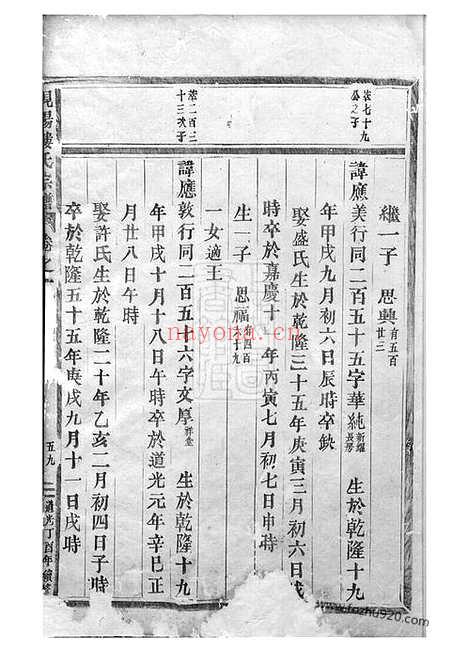 裳七十九
公之子
繼一子　思興 肖五百廿三
諱應美行同二百五十五字華純 新耀長房 生於乾隆十九
年甲戌九月初六日辰時卒缺
娶盛氏生於乾隆三十五年庚寅三月初六日戌
時卒於嘉慶十一年丙寅七月初七日申時
生一子　思福 肖四百十九
一女適王
裳二百三
十三次子
諱應敦行同二百五十六字文厚 祥堂 生於乾隆十九
年甲戌十月十八日午時卒於道光元年辛巳正
月廿八日午時
娶許氏生於乾隆二十年乙亥二月初四日子時
卒於乾隆五十五年庚戌九月十一日戌時
峴陽樓氏宗譜 卷之
五九
道光丁酉年續修
nayona.cn
www.fozhu920.com